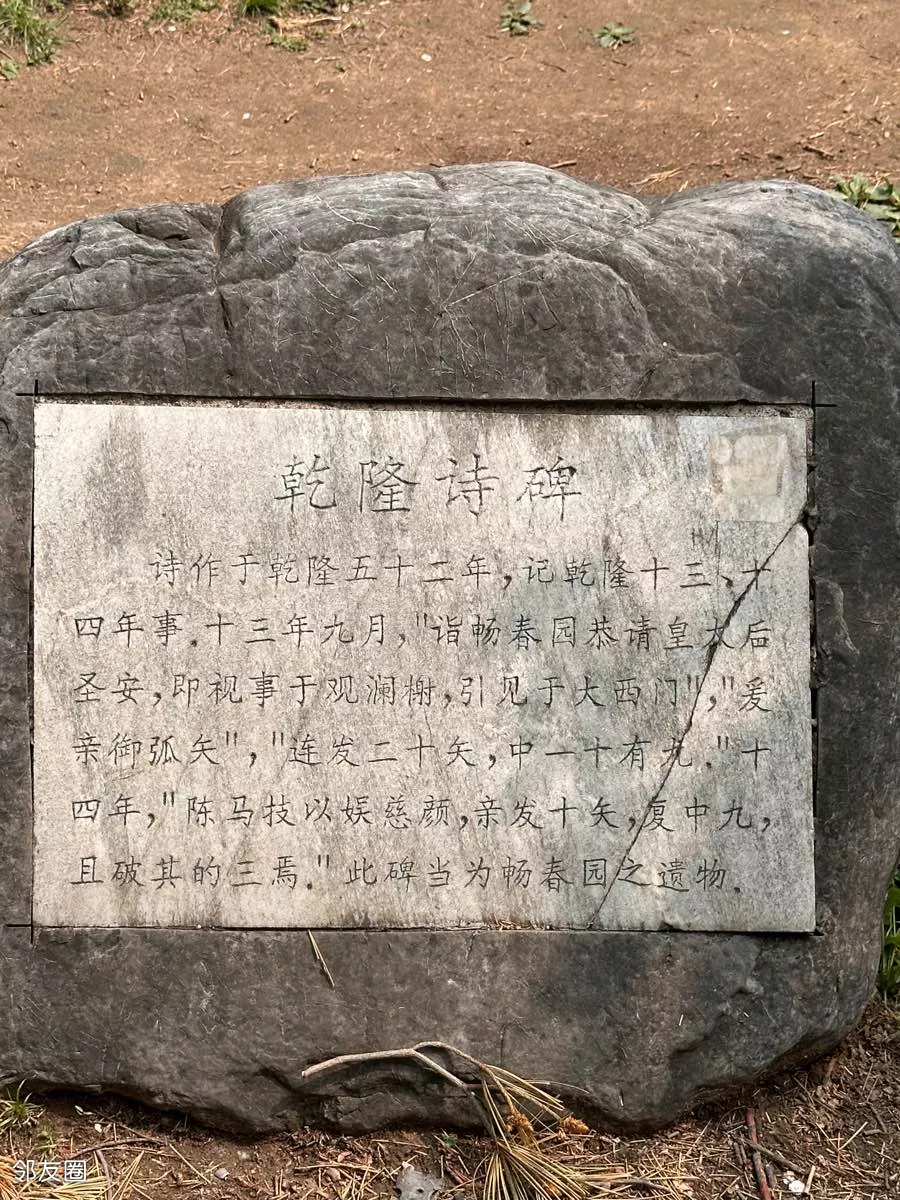 乾隆诗碑
诗作于乾隆五十二年,记乾隆十三、十
四年事.十三年九月,"诣畅春园恭请皇太后
圣安,即视事于观澜榭,引见于大西门","爰
亲御弧矢","连发二十矢,中一十有九."十
四年,"陈马技以娱慈颜,亲发十矢,复中九,
且破其的三焉."此碑当为畅春园之遗物.
邻友圈